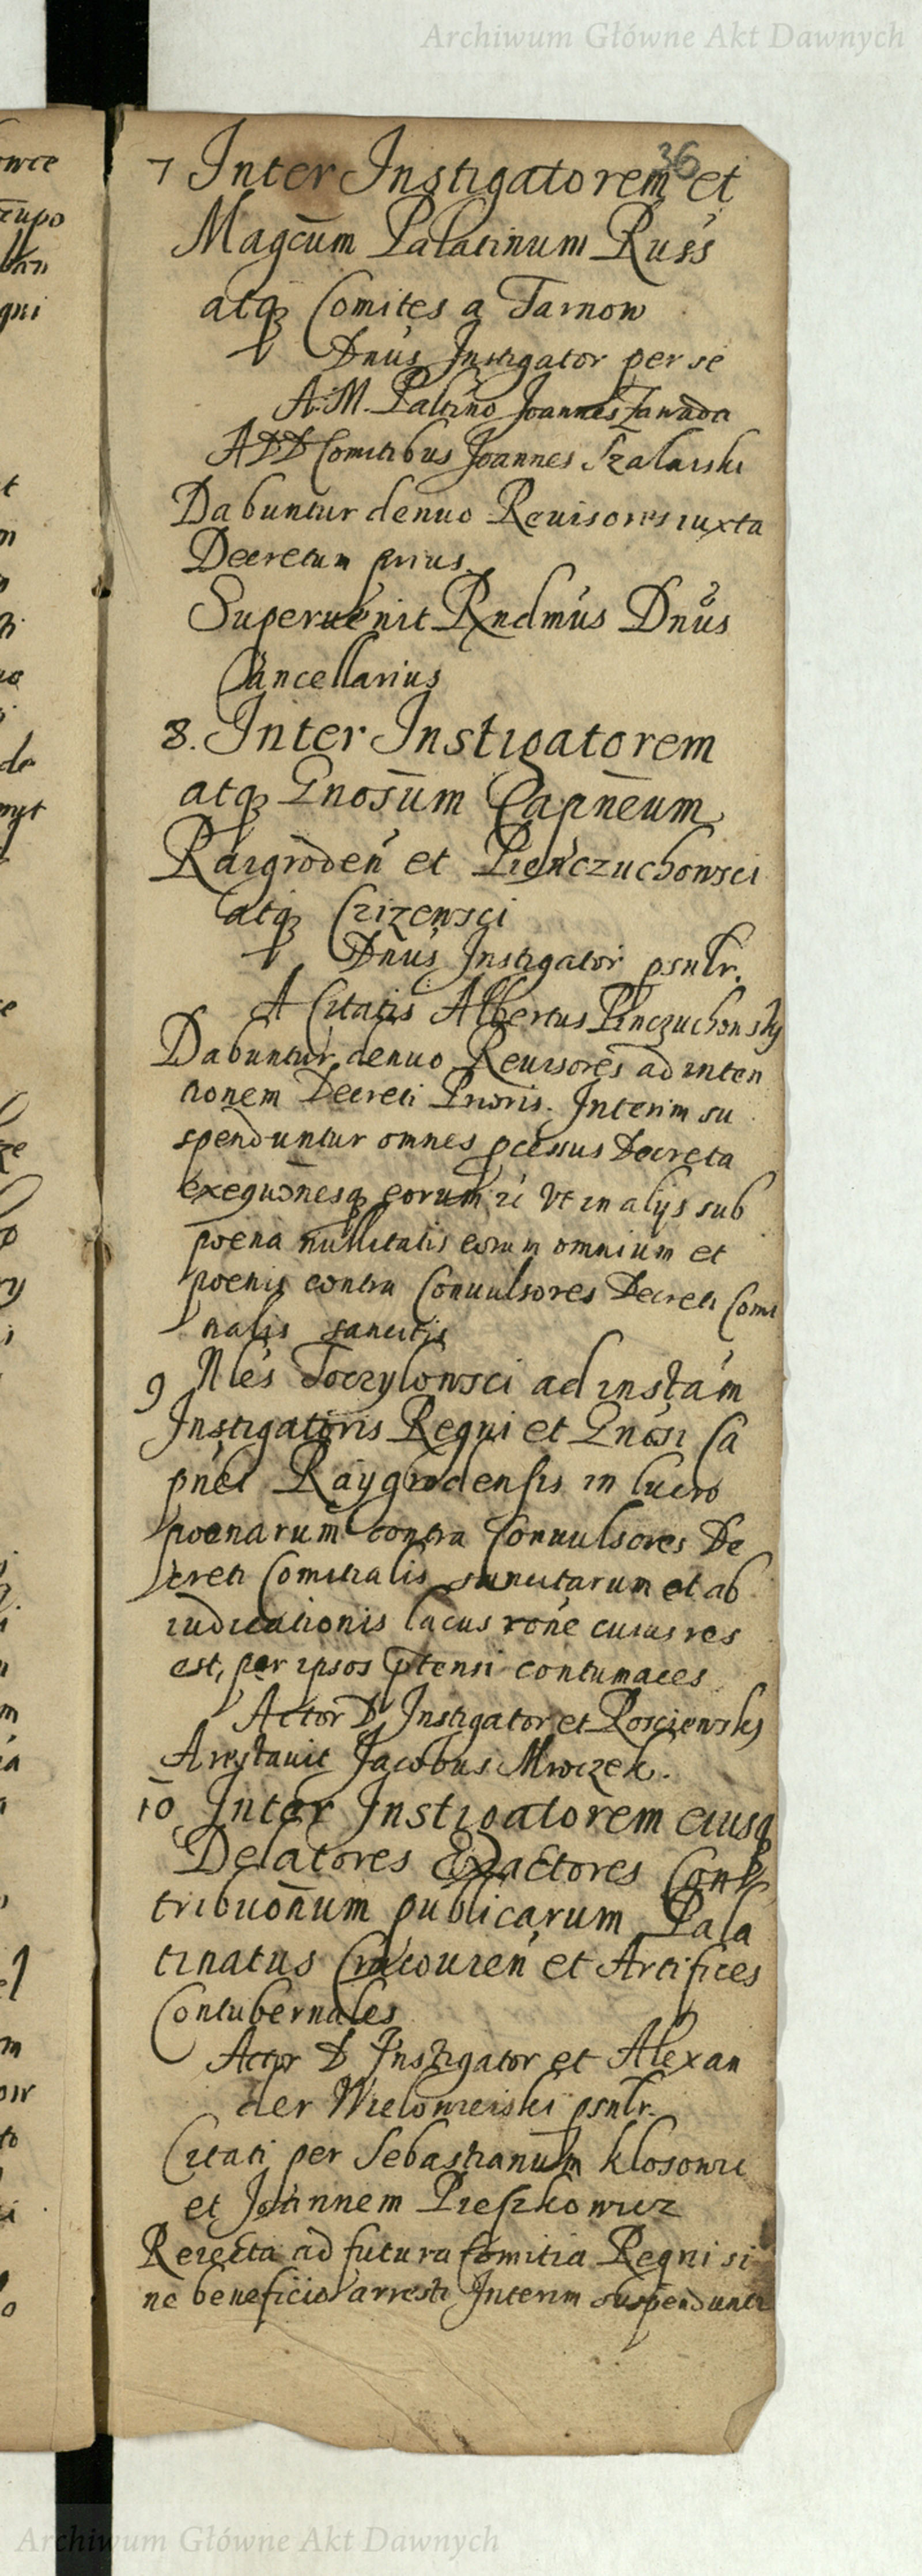 Archiwum Główne Akt Dawnych
36
7 Inter Instigatorem et
Magcum Palatinum Russ
atq Comites a Tarnow
Dnus Instigator per se
A. M. Paltino Joannes Zawada
A DD Comitibus Joannes Szalaiski
Dabuntur denuo Reuisores iuxta
Decretum prius.
Superuenit Rndmus Dnus
Cancellarius
8. Inter Instigatorem
atq Gnosum Capneum
Raigroden et Pienczuchowsci
atq Crizewsci
Dnus Instigator psnlr.
A Citatis Albertus Pinczuchowsky
Dabuntur denuo Reuisores ad inten
tionem Decreti Prioris. Interim su
spenduntur omnes pcessus Decreta
exequonesq eorum ut in alijs sub
poena nullitatis eorum omnium et
poenis contra Conuulsores Decreti Comi
nalis sancitis
9 Nles Toczylowsci ad instam
Instigatoris Regni et Gnosi Ca
pnei Raygrodensis in lucro
poenarum contra Conuulsores De
creti Comitialis sancitarum et ab
iudicationis lacus rone cuius res
est, per ipsos ptensi contumaces
Actor D Instigator et Rosciewsky
Arestauit Jacobus Mroczek.
10 Inter Instigatorem eiusq
Delatores Exactores Con
tribuonum publicarum Pala
tinatus Cracouien et Artifices
Contubernales
Actor D Instigator et Alexan
der Wielowieiski psnlr.
Citati per Sebastianum Klosowic
et Joannem Pieszkowicz
Reiecta ad futura Comitia Regni si
ne beneficio arresti Interim suspendunt
Archiwum Główne Akt Dawnych